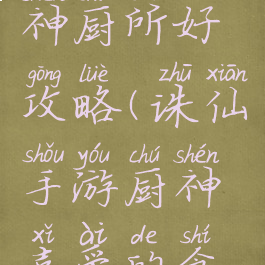 神厨所好
gōng lüè zhū xiān
攻略(诛仙
shǒu yóu chú shén
手游厨神
xǐ ài de shí
喜爱的食